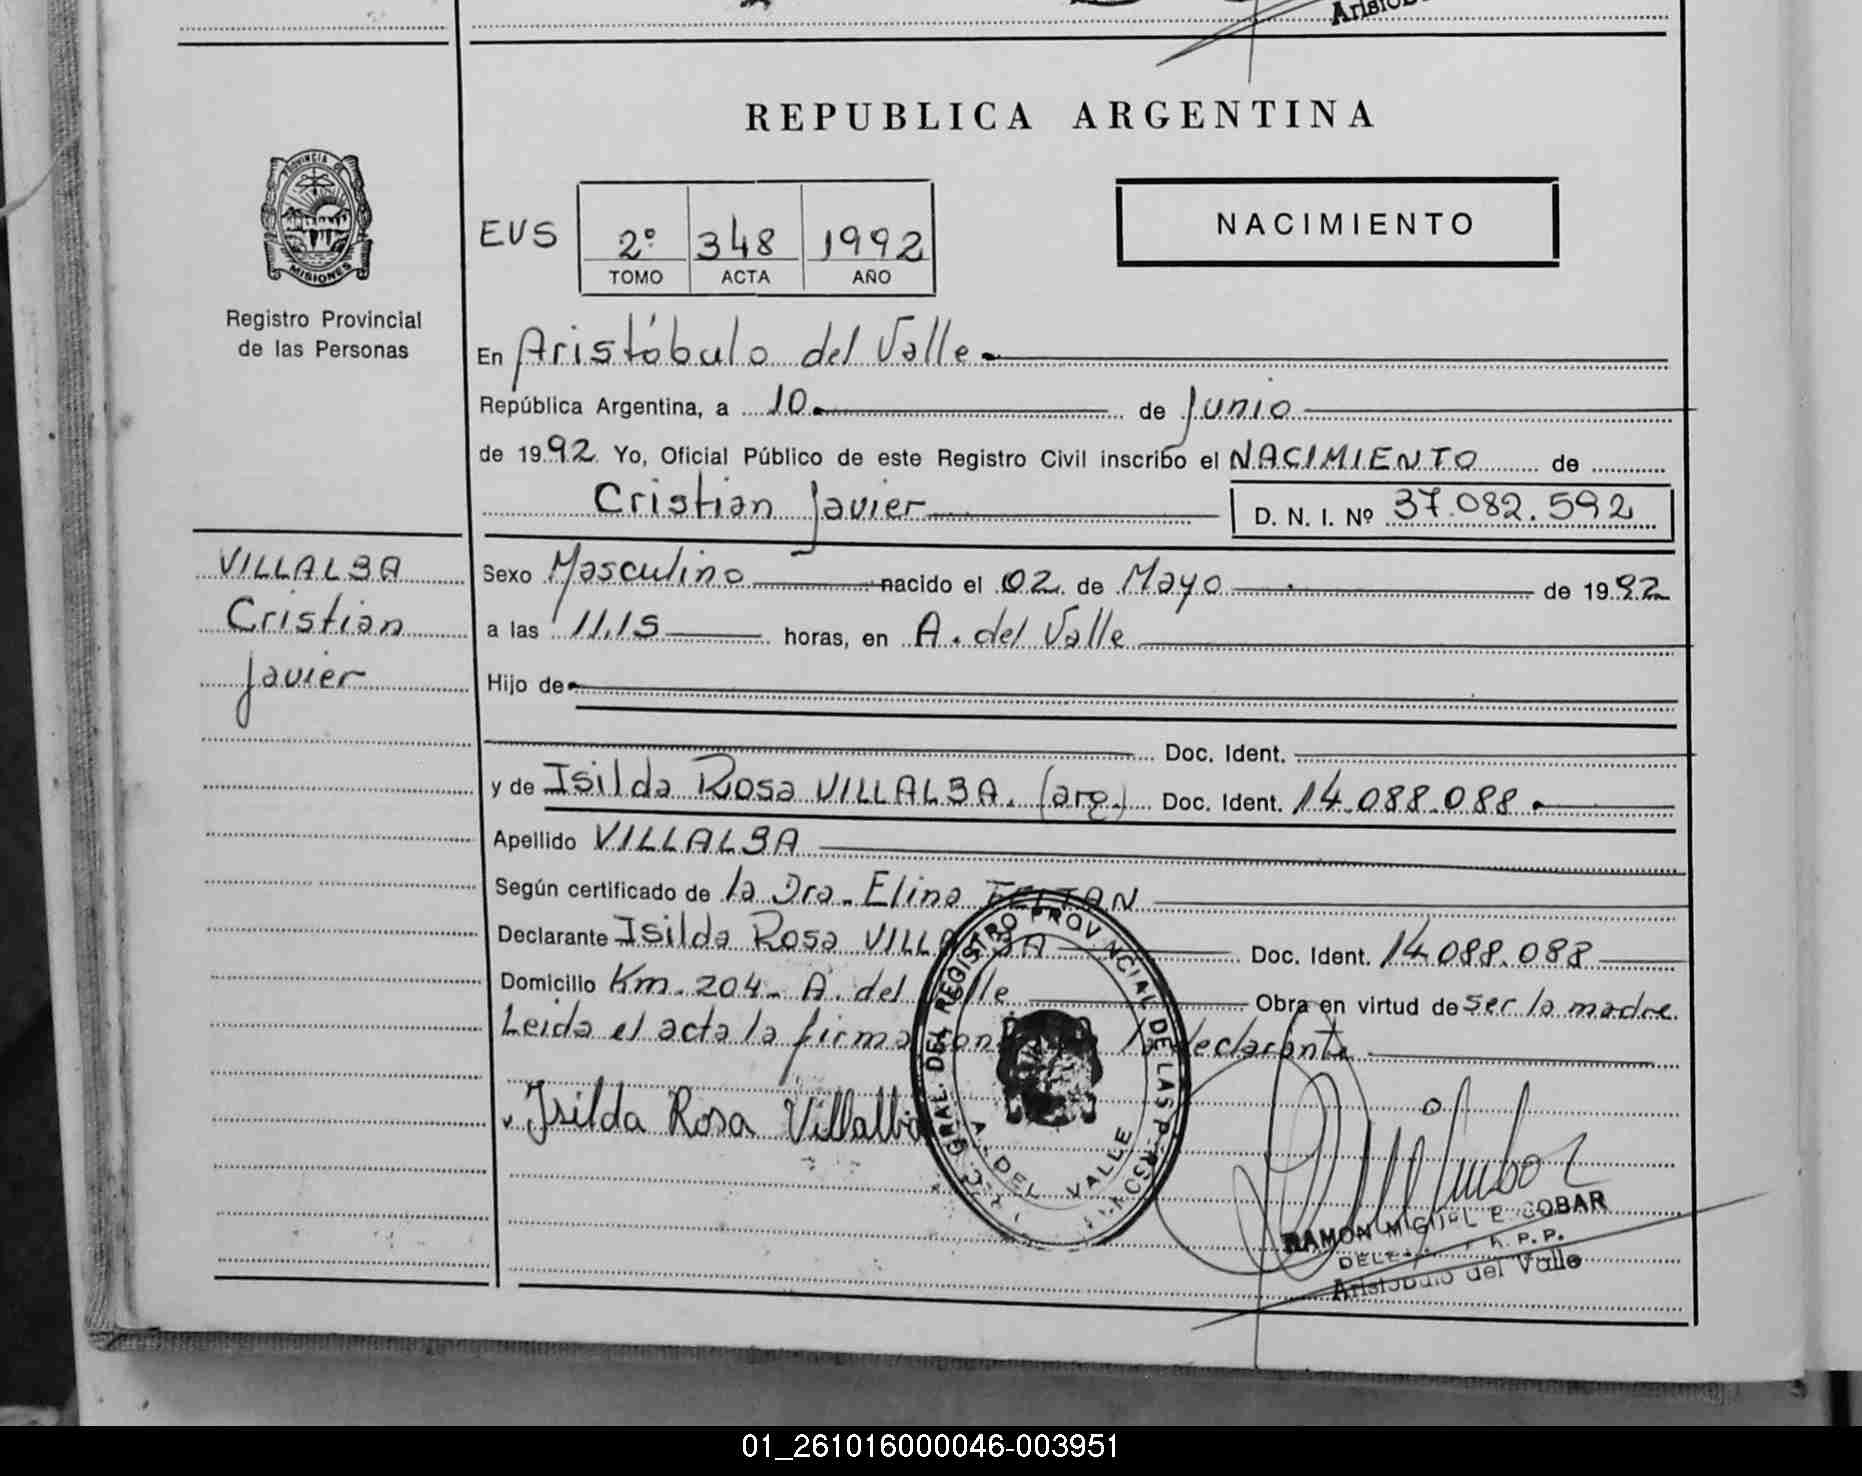 REPUBLICA ARGENTINA
PROVINCIA DE
MISIONES
Registro Provincial
de las Personas
EVS 2º 348 1992
TOMO ACTA AÑO
NACIMIENTO
En Aristóbulo del Valle.
República Argentina, a 10. de Junio
de 1992 Yo, Oficial Público de este Registro Civil inscribo el NACIMIENTO de
Cristian Javier D. N. I. Nº 37.082.592
VILLALBA
Cristian
Javier
Sexo Masculino nacido el 02 de Mayo de 1992
a las 11,15 horas, en A. del Valle
Hijo de
Doc. Ident.
y de Isilda Rosa VILLALBA. (arg.) Doc. Ident. 14.088.088.
Apellido VILLALBA
Según certificado de la Dra. Elina
Declarante Isilda Rosa VILLALBA Doc. Ident. 14.088.088
Domicilio Km. 204. A. del Valle Obra en virtud de ser la madre.
Leida el acta la firma la declarante
Isilda Rosa Villalba
GRAL. DEL REGISTRO PROVINCIAL DE LAS PERSONAS
A. DEL VALLE
RAMON MIGUEL ESCOBAR
R. P. P.
Aristobulo del Valle
01_261016000046-003951